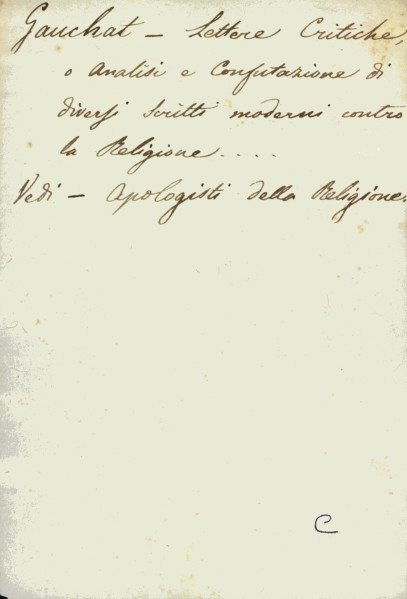 Gauchat – Lettere Critiche,
o Analisi e Confutazione di
diversi scritti moderni contro
la Religione....
Vedi – Apologisti della Religione.
C